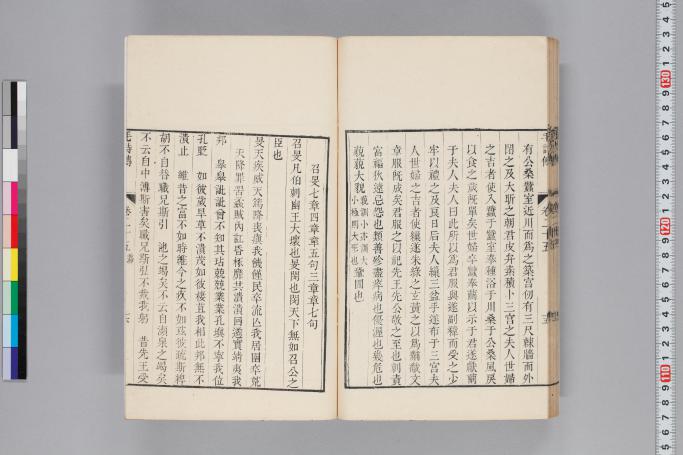 有公桑蠶室近川而爲之築宮仞有三尺棘牆而外
閉之及大昕之朝君皮弁素積卜三宮之夫人世婦
之吉者使入蠶于蠶室奉種浴于川桑于公桑風戾
以食之歲旣單矣世婦卒蠶奉繭以示于君遂獻繭
于夫人夫人曰此所以爲君服與遂副褘而受之少
牢以禮之及良日后夫人繅三盆手遂布于三宮夫
人世婦之吉者使繅遂朱綠之玄黃之以爲黼黻文
章服旣成矣君服之以祀先王先公敬之至也刺責
富福狄遠忌怨也類善殄盡瘁病也優渥也幾危也
藐藐大貌 鞏固也
召旻七章四章章五句三章章七句
召旻凡伯刺幽王大壞也旻閔也閔天下無如召公之
臣也
旻天疾威天篤降喪瘨我饑饉民卒流亾我居圉卒荒
天降罪罟蟊賊內訌昏椓靡共潰潰回遹實靖夷我
邦 皋皋訿訿曾不知其玷兢兢業業孔塡不寧我位
孔貶 如彼歲旱草不潰茂如彼棲苴我相此邦無不
潰止 維昔之富不如時維今之疚不如茲彼疏斯粺
胡不自替職兄斯引 池之竭矣不云自瀕泉之竭矣
不云自中溥斯害矣職兄斯弘不烖我躬 昔先王受